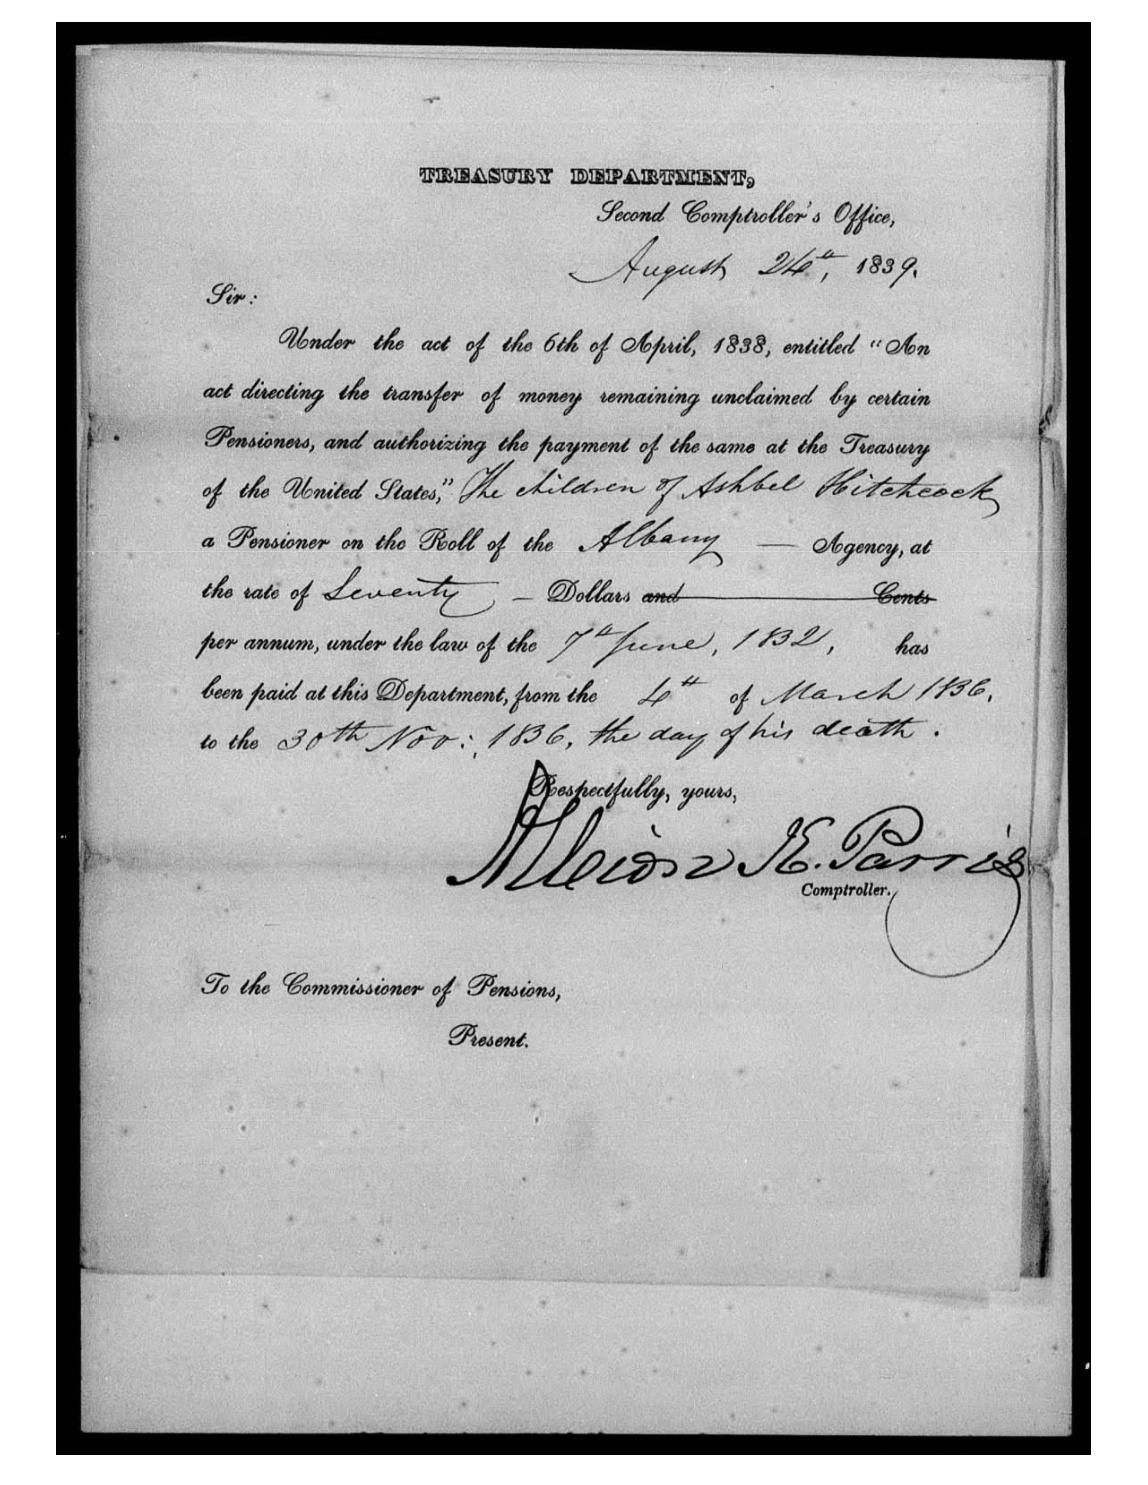 TREASURY DEPARTMENT,
Second Comptroller's Office,
August 24th, 1839.
Sir:
Under the act of the 6th of April, 1838, entitled "An
act directing the transfer of money remaining unclaimed by certain
Pensioners, and authorizing the payment of the same at the Treasury
of the United States," The children of Ashbel Hitchcock
a Pensioner on the Roll of the Albany — Agency, at
the rate of Seventy — Dollars and Cents
per annum, under the law of the 7th June, 1832, has
been paid at this Department, from the 4th of March 1836,
to the 30th Nov: 1836, the day of his death.
Respectfully, yours,
Albion K. Parris
Comptroller.
To the Commissioner of Pensions,
Present.